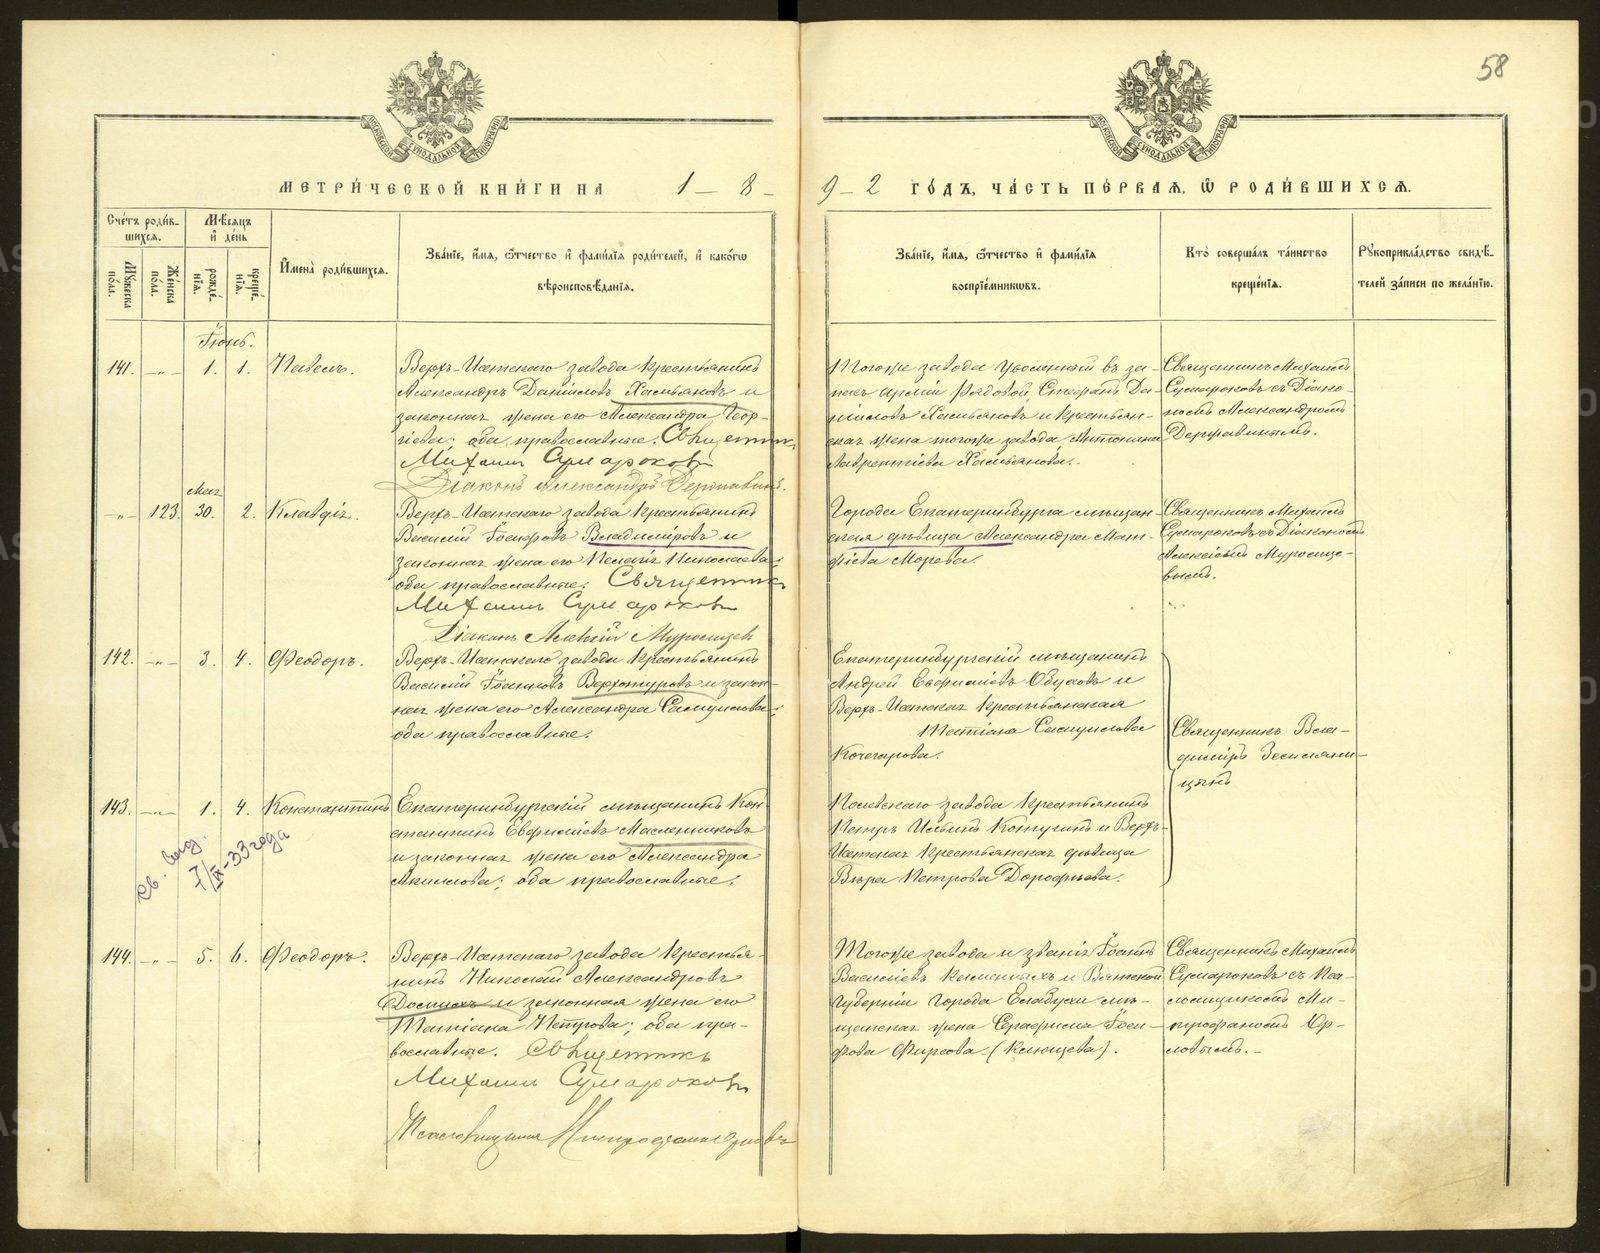 58
МОСКОВСКОЙ СУНОДАЛЬНОЙ ТИПОГРАФІИ
МОСКОВСКОЙ СУНОДАЛЬНОЙ ТИПОГРАФІИ
МЕТРИ́ЧЕСКОЙ КНИ́ГИ НА 1 - 8 -
9 - 2 ГО́ДЪ, ЧА́СТЬ ПЕ́РВАЯ, Ѿ РОДИ́ВШИХСЯ.
Сче́тъ роди́в-
шихся.
Му́жеска по́ла.
Же́нска по́ла.
Мѣ́сяцъ
и҆ де́нь
рожде́-
нїя.
креще́-
нїя.
И҆мена̀ роди́вшихся.
Зва́нїе, и҆́мя, ѻ҆́тчество и҆ фами́лїя роди́телей, и҆ како́гѡ
вѣроисповѣ́данїя.
Зва́нїе, и҆́мя, ѻ҆́тчество и҆ фами́лїя
воспрїе́мникѡвъ.
Кто̀ соверша́лъ та́инство
креще́нїя.
Рꙋкоприкла́дство свидѣ́-
телей за́писи по жела́нїю.
Іюнь.
141. -„- 1. 1. Павелъ.
Верхъ-Исетскаго завода крестьянинъ
Александръ Даниловъ Хамьяновъ и
законная жена его Александра Геор-
гіева; оба православные. Священникъ
Михаилъ Сумароковъ
Діаконъ Александръ Державинъ.
Тогоже завода уволенный въ за-
пасъ арміи рядовой, Стефанъ Да-
ниловъ Хамьяновъ и крестьян-
ская жена тогоже завода Антонина
Лаврентіева Хамьянова.
Священникъ Михаилъ
Сумароковъ съ Діако-
номъ Александромъ
Державинымъ.
Мая
-„- 123. 30. 2. Клавдія.
Верхъ-Исетскаго завода крестьянинъ
Василій Іосифовъ Владиміровъ и
законная жена его Пелагія Николаева;
оба православные. Священникъ
Михаилъ Сумароковъ
Діаконъ Алексій Муромцев
Города Екатеринбурга мѣщан-
ская дѣвица Александра Мат-
фіева Морева.
Священникъ Михаилъ
Сумароковъ съ Діакономъ
Алексіемъ Муромце-
вымъ.
142. -„- 3. 4. Феодоръ.
Верхъ-Исетскаго завода крестьянинъ
Василій Іоанновъ Верхотуровъ и закон-
ная жена его Александра Самуилова;
оба православные.
Екатеринбургскій мѣщанинъ
Андрей Евфиміевъ Обуховъ и
Верхъ-Исетская крестьянская
Татіана Самуилова
Кочегарова.
Священникъ Вла-
диміръ Земляни-
цынъ
143. -„- 1. 4. Константинъ
св. выд.
7/IX-33 года
Екатеринбургскій мѣщанинъ Кон-
стантинъ Евфиміевъ Масленниковъ
и законная жена его Александра
Акилова; оба православные.
Полевскаго завода крестьянинъ
Петръ Ильинъ Котугинъ и Верхъ-
Исетская крестьянская дѣвица
Вѣра Петрова Дорофѣева.
144. -„- 5. 6. Феодоръ.
Верхъ-Исетскаго завода крестья-
нинъ Николай Александровъ
и законная жена его
Татіана Петрова; оба пра-
вославные. Священникъ
Михаилъ Сумароковъ
Псаломщикъ Митрофанъ Орловъ
Тогоже завода и званія Іоаннъ
Василіевъ и Вятской
губерніи города Елабуги мѣ-
щанская жена Серафима Іоси-
фова Фирсова (Клюцева).
Священникъ Михаилъ
Сумароковъ съ Пса-
ломщикомъ Ми-
трофаномъ Ор-
ловымъ.